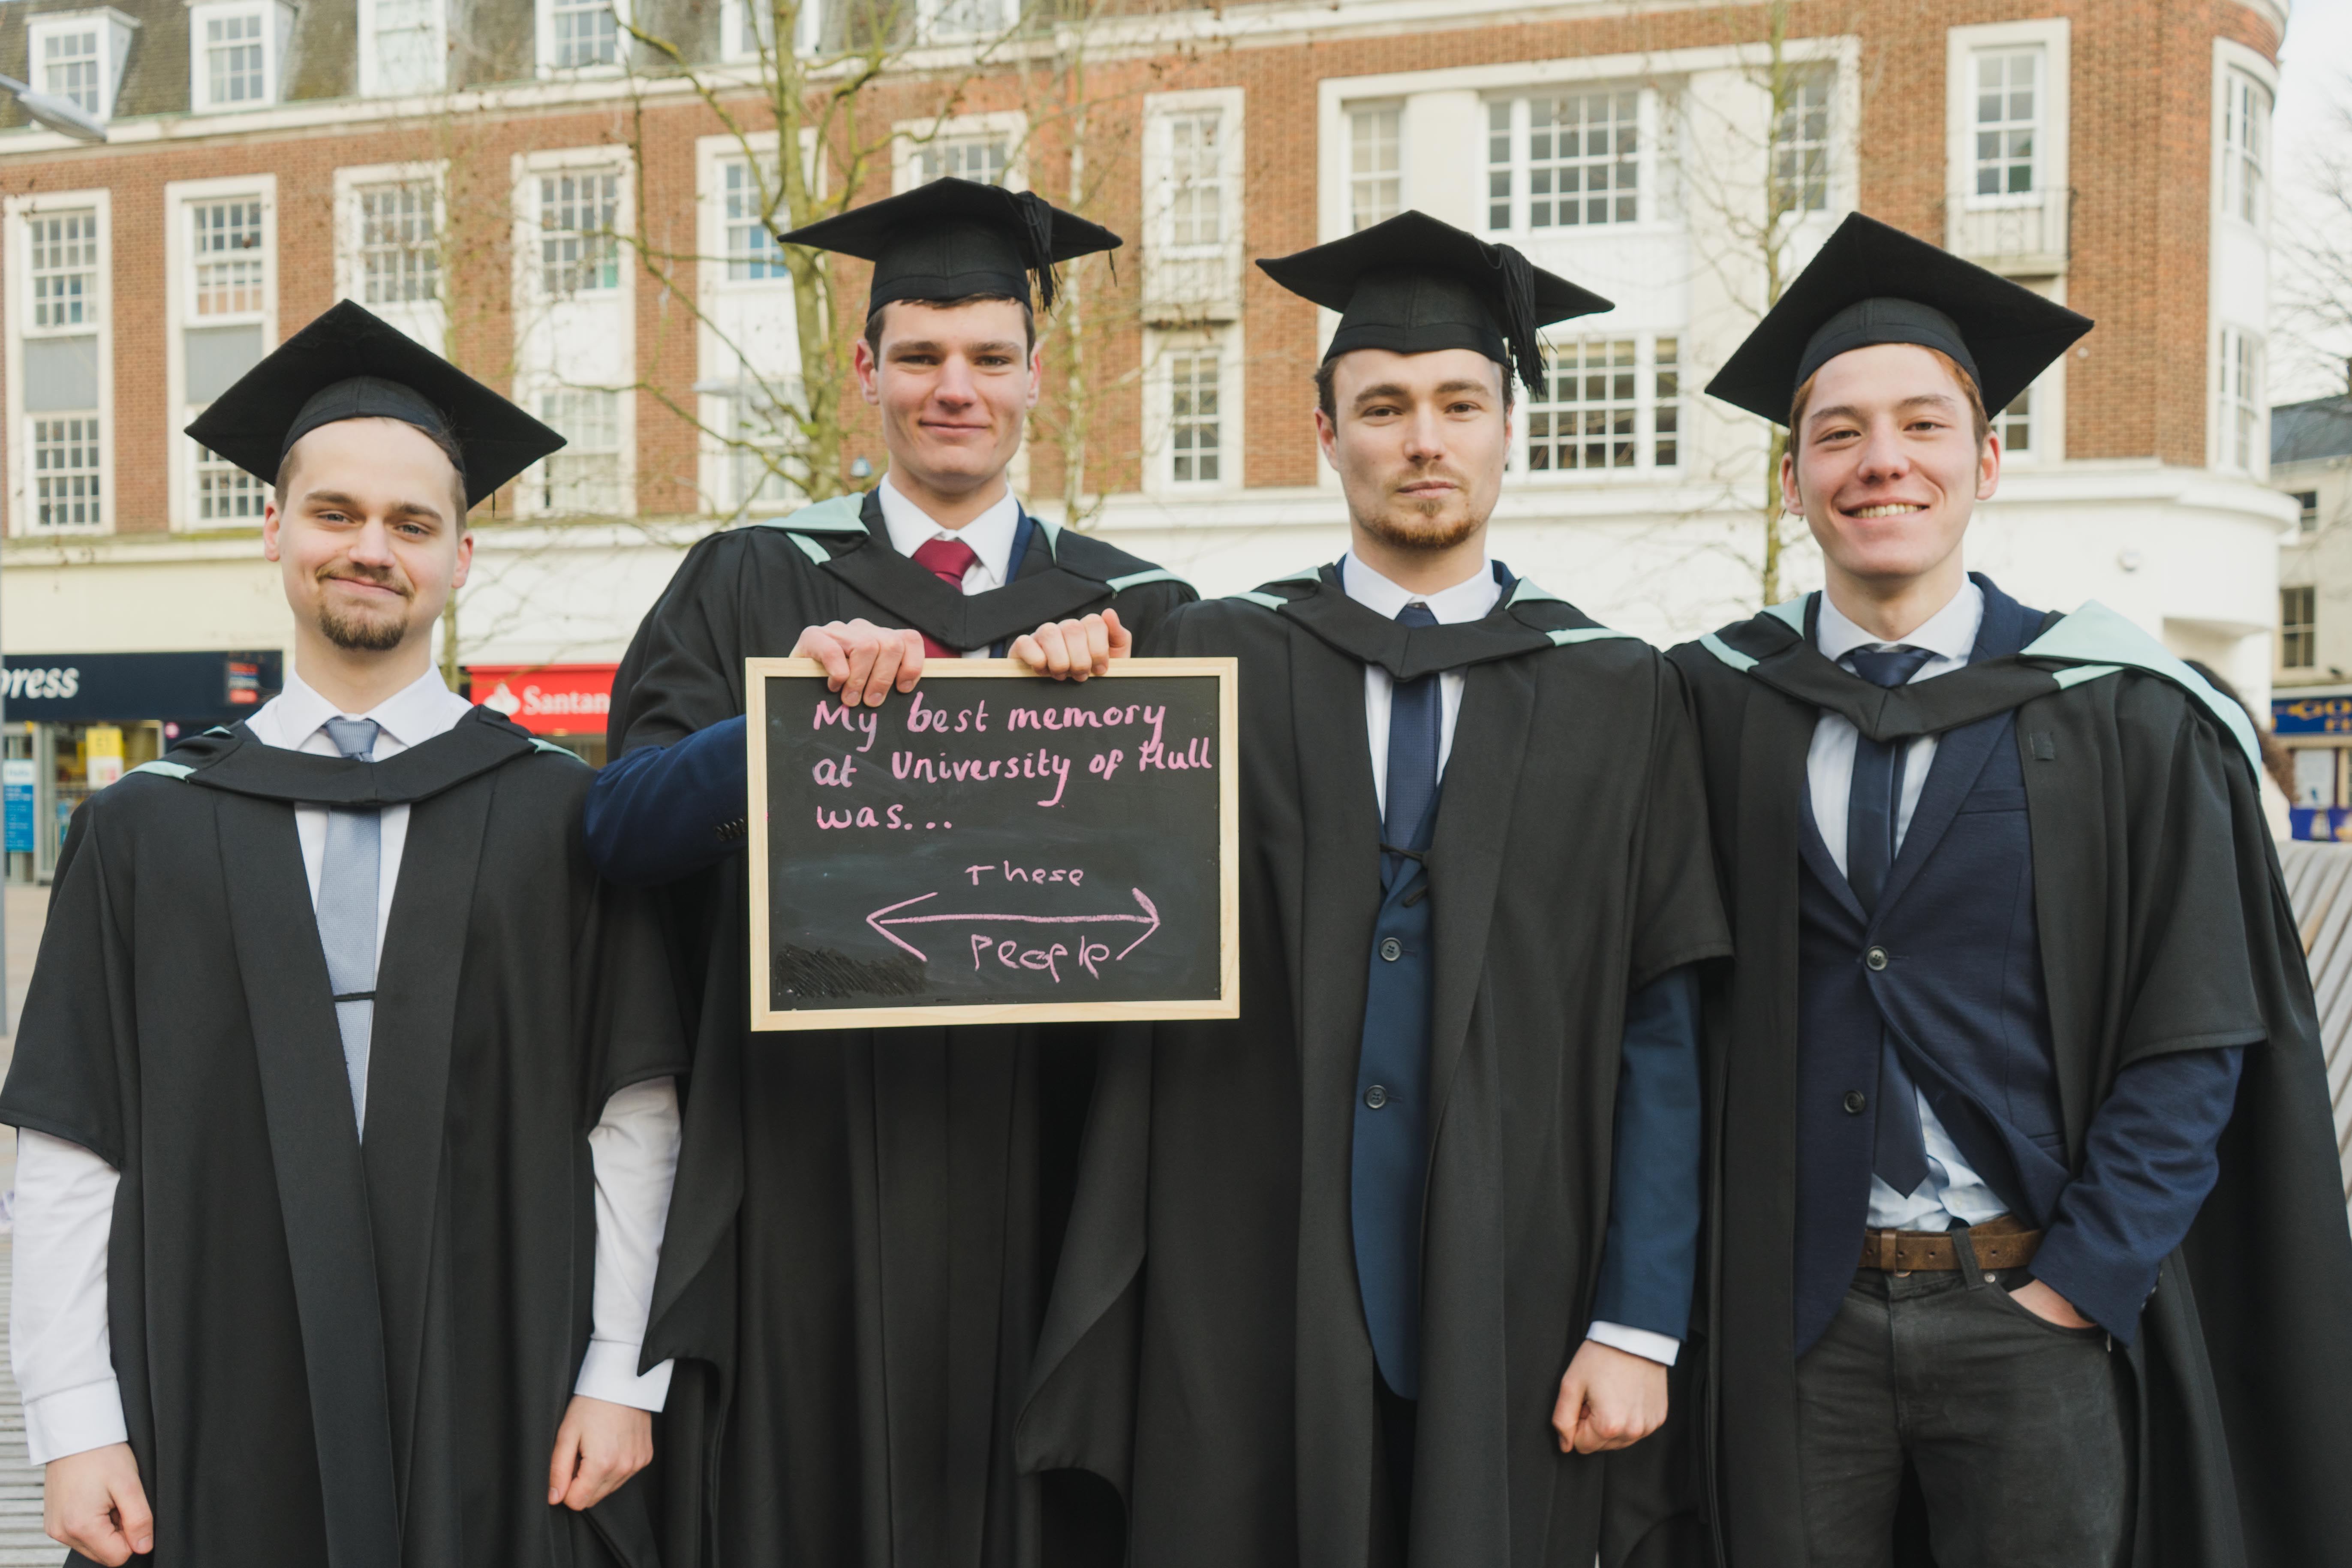 My best memory
at University of Hull
was...
These
People
press
Santan